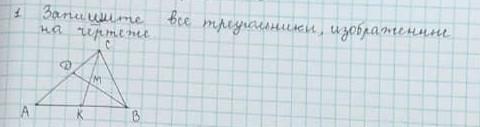 1 Запишите все треугольники, изображенные
на чертеже
C
D
M
A K B